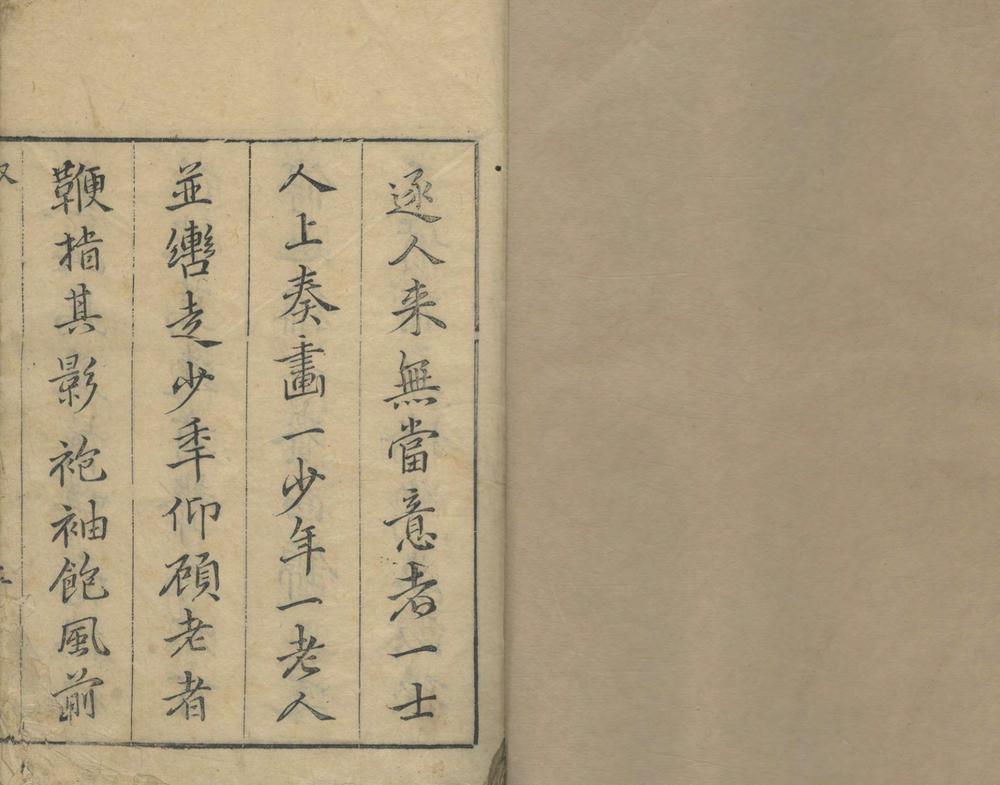 逐人来無當意者一士
人上奏畫一少年一老人
並轡走少秊仰顧老者
鞭指其影袍袖飽風前